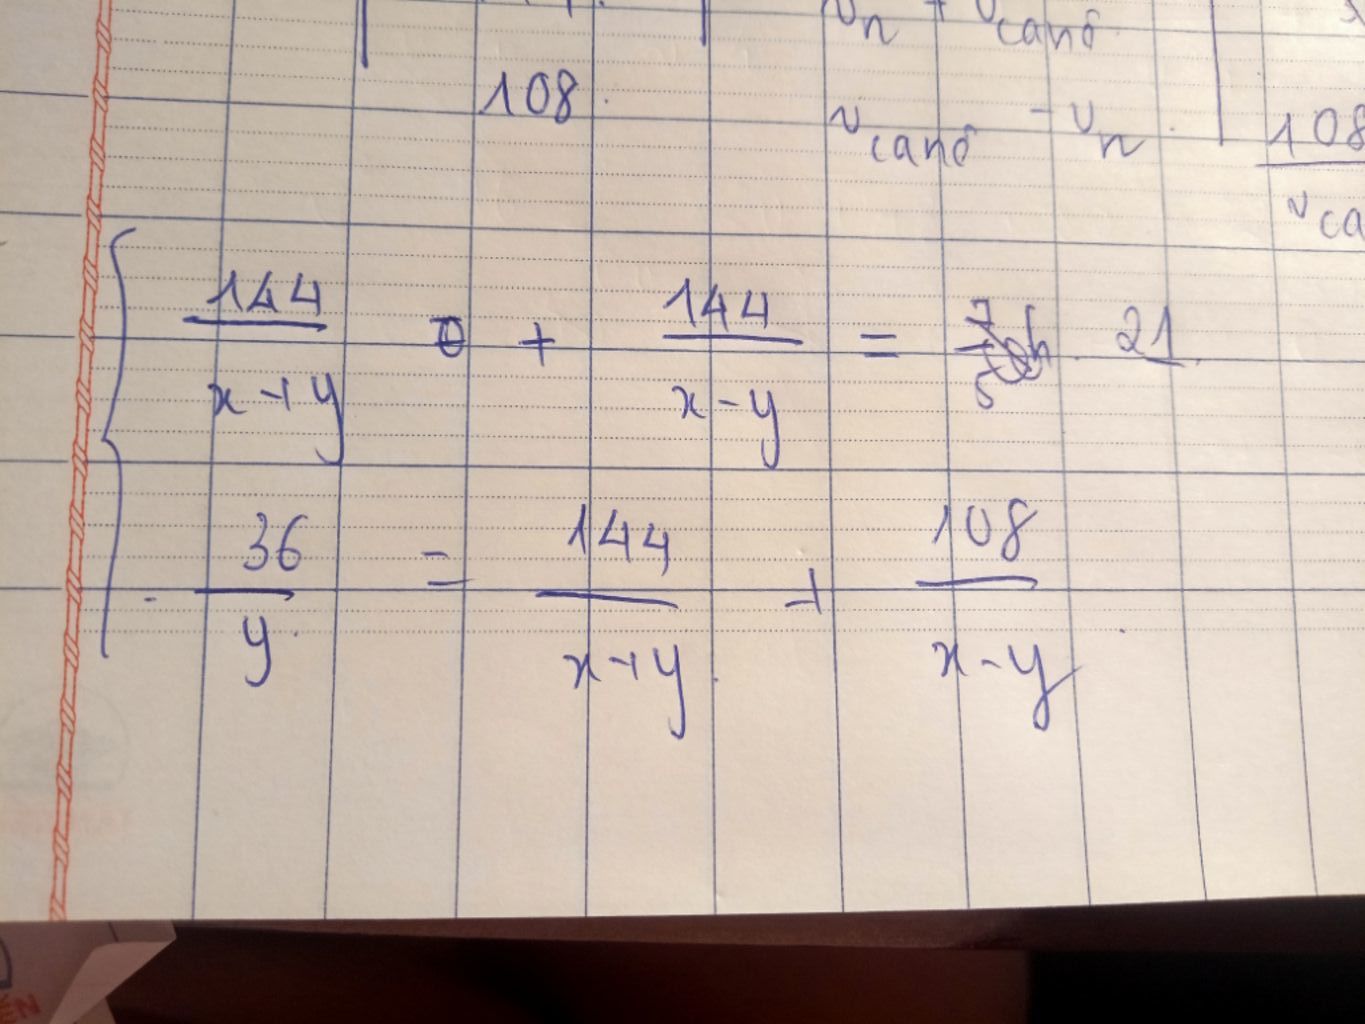 vn + vcanô
108.
vcanô - vn. 108
vca
144/(x+y) + 144/(x-y) = 21
36/y = 144/(x+y) + 108/(x-y)